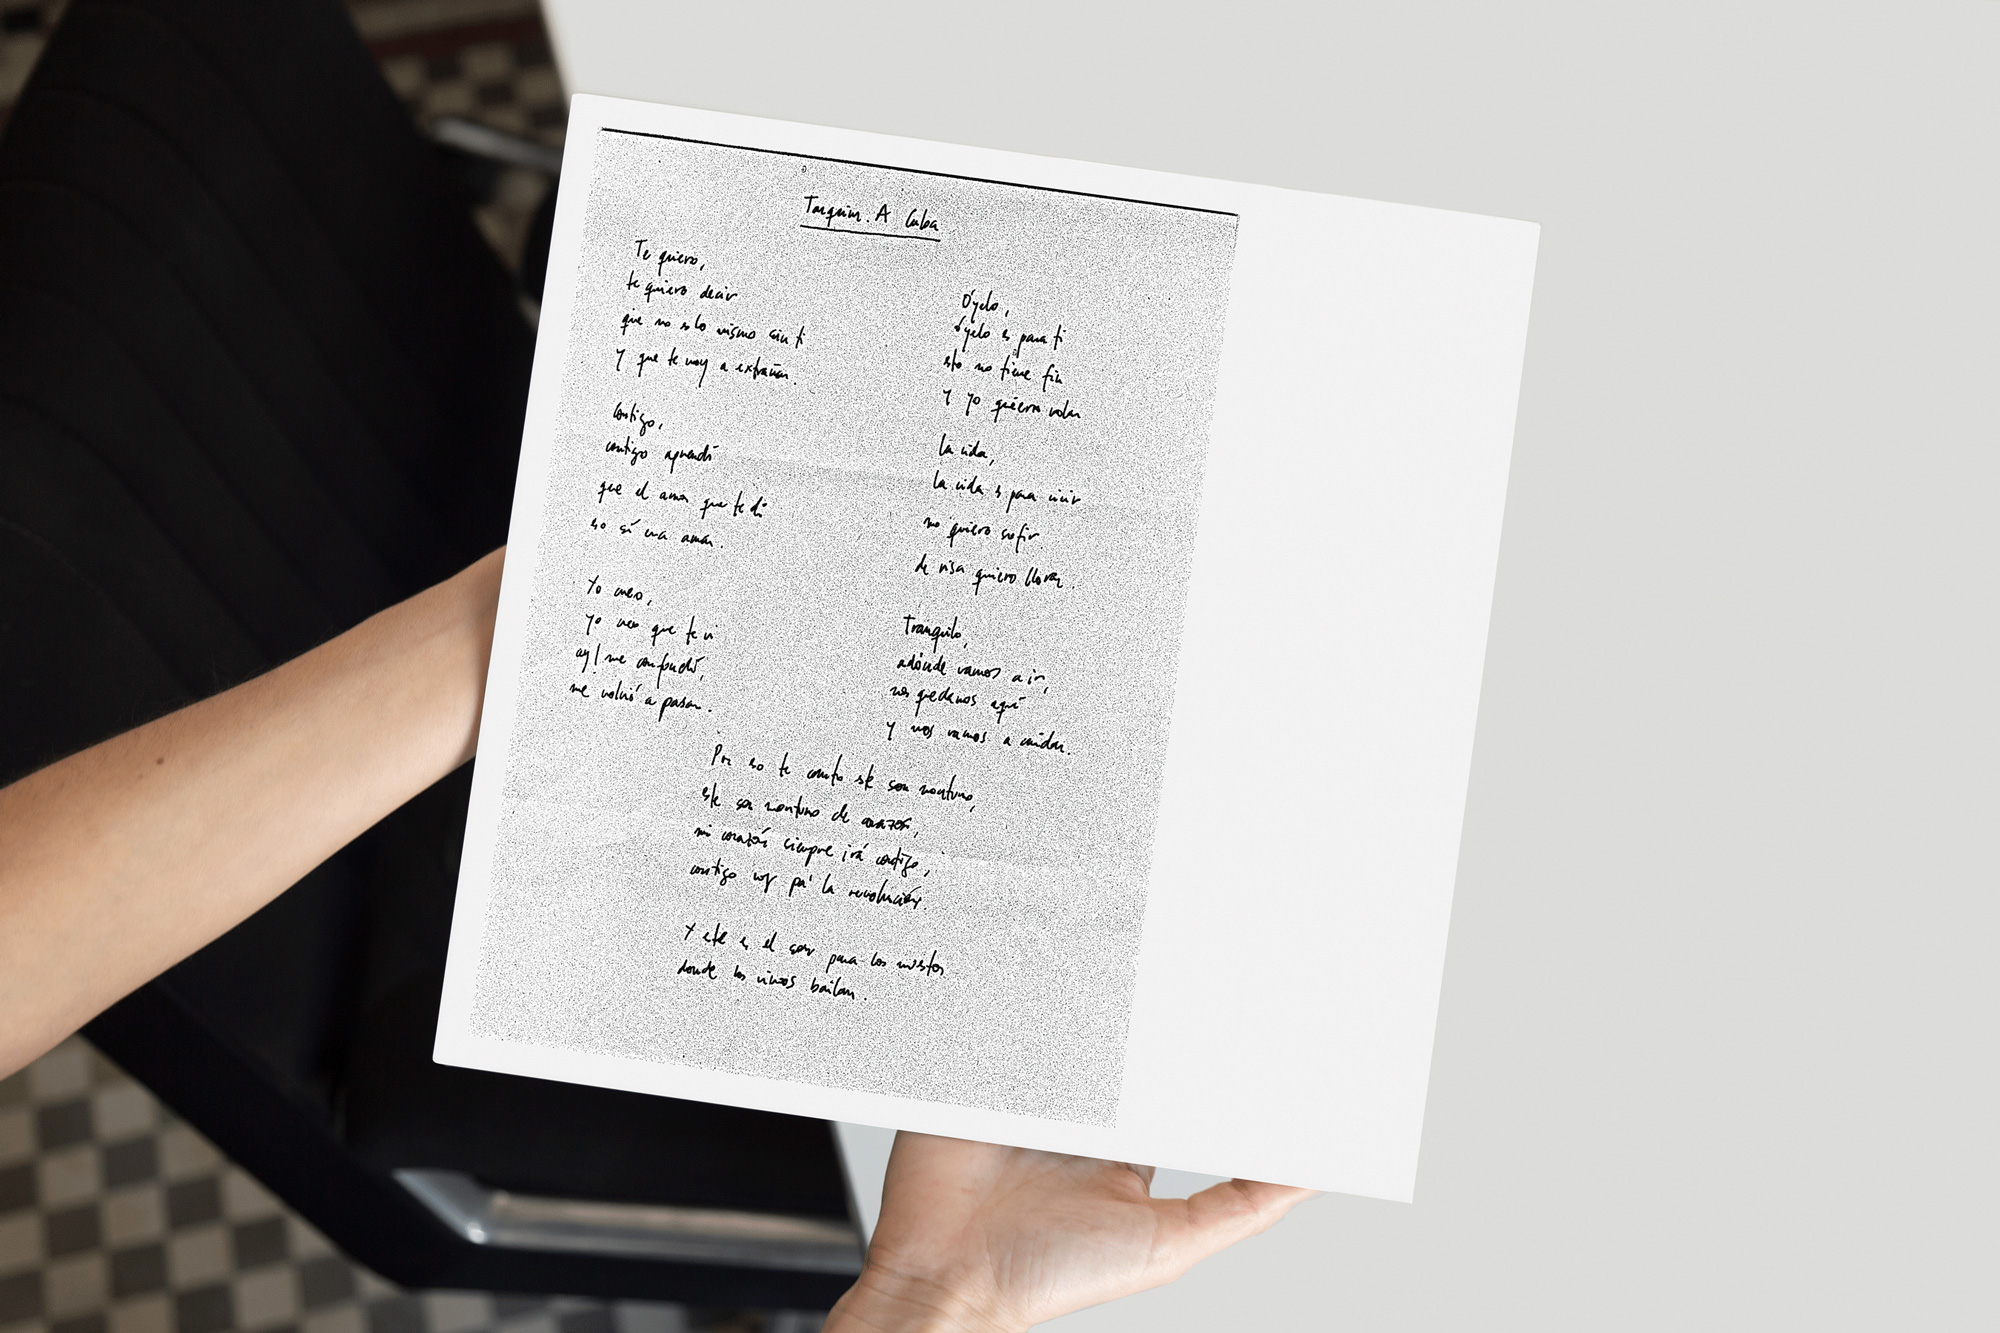 Tarquin. A Cuba
Te quiero,
te quiero decir
que no es lo mismo sin ti
y que te voy a extrañar.
Contigo,
contigo aprendí
que el amor que te di
eso sí era amar.
Yo creo,
yo creo que te vi
ay! me confundí,
me volvió a pasar.
Óyelo,
óyelo es para ti
esto no tiene fin
y yo quiero volar
La vida,
la vida es para vivir
no quiero sufrir
de risa quiero llorar.
Tranquilo,
adónde vamos a ir,
nos quedamos aquí
y nos vamos a cuidar.
Por eso te canto este son montuno,
este son montuno de corazón,
mi corazón siempre irá contigo,
contigo voy pa' la revolución.
Y este es el son para los muertos
donde los vivos bailan.